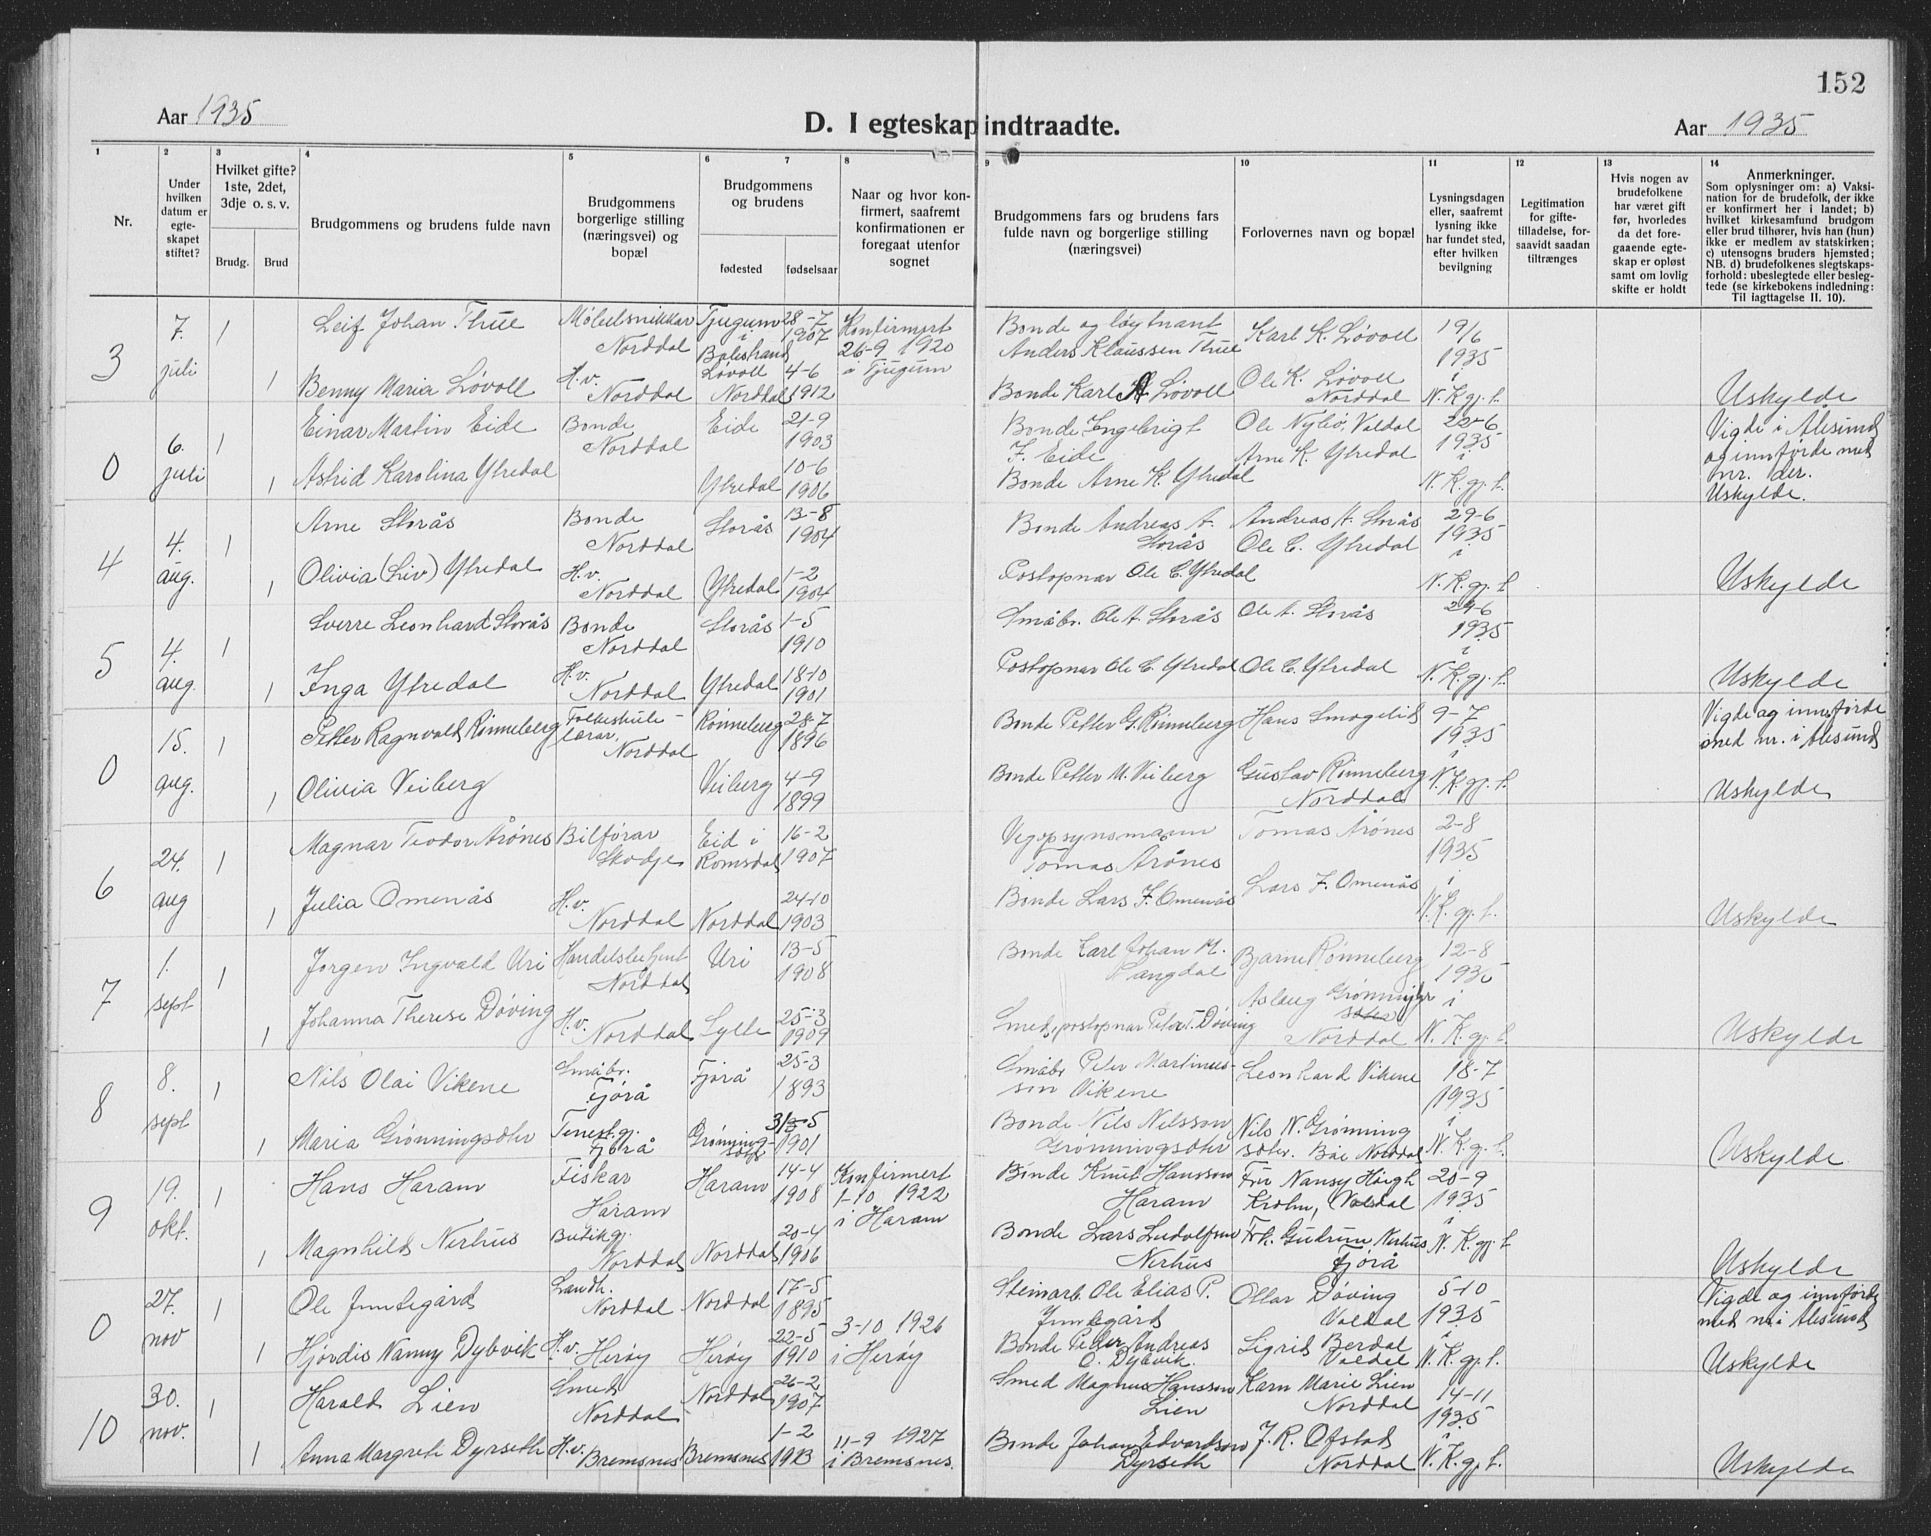 152
Aar 1935
D. I egteskap indtraadte.
Aar 1935
1 2 3 4 5 6 7 8 9 10 11 12 13 14
Nr.
Under hvilken datum er egte-skapet stiftet?
Hvilket gifte? 1ste, 2det, 3dje o. s. v.
Brudg. Brud
Brudgommens og brudens fulde navn
Brudgommens borgerlige stilling (næringsvei) og bopæl
Brudgommens og brudens
fødested fødselsaar
Naar og hvor kon-firmert, saafremt konfirmationen er foregaat utenfor sognet
Brudgommens fars og brudens fars fulde navn og borgerlige stilling (næringsvei)
Forlovernes navn og bopæl
Lysningsdagen eller, saafremt lysning ikke har fundet sted, efter hvilken bevilgning
Legitimation for gifte-tilladelse, for-saavidt saadan tiltrænges
Hvis nogen av brudefolkene har været gift før, hvorledes da det fore-gaaende egte-skap er opløst samt om lovlig skifte er holdt
Anmerkninger.
Som oplysninger om: a) Vaksi-nation for de brudefolk, der ikke er konfirmert her i landet; b) hvilket kirkesamfund brudgom eller brud tilhører, hvis han (hun) ikke er medlem av statskirken; c) utensogns bruders hjemsted; NB. d) brudefolkenes slegtskaps-forhold: ubeslegtede eller besleg-tede (se kirkebokens indledning: Til iagttagelse II. 10).
3 7. juli 1 Leif Johan Thue Møbelsnikkar Norddal Tjugum i Balestrand 28-7 1907 Konfirmert 26-9 1920 i Tjugum Bonde og løytnant Anders Klaussen Thue Karl K. Løvoll 19/6 1935
1 Benny Maria Løvoll H.v. Norddal Løvoll Norddal 4-6 1912 Bonde Karl K. Løvoll Ole K. Løvoll Norddal i N.K.gj.f. Uskylde
0 6. juli 1 Einar Martin Eide Bonde Norddal Eide 21-9 1903 Bonde Ingebrigt F. Eide Ole Nybø, Valdal 22-6 1935 Vigde i Ålesund og innførde med nr. der.
1 Astrid Karolina Ytredal Ytredal 10-6 1906 Bonde Arne K. Ytredal Arne K. Ytredal i N.K.gj.f. Uskylde.
4 4. aug. 1 Arne Storås Bonde Norddal Storås 13-8 1904 Bonde Andreas A. Storås Andreas A. Storås 29-6 1935
1 Olivia (Liv) Ytredal H.v. Norddal Ytredal 1-2 1904 Postopnar Ole C. Ytredal Ole C. Ytredal i N.K.gj.f. Uskylde
5 4. aug. 1 Sverre Leonhard Storås Bonde Norddal Storås 1-5 1910 Småbr. Ole A. Storås Ole A. Storås 29-6 1935
1 Inga Ytredal H.v. Norddal Ytredal 18-10 1901 Postopnar Ole C. Ytredal Ole C. Ytredal i N.K.gj.f. Uskylde
0 15. aug. 1 Petter Ragnvald Rønneberg Folkeskule-lærar, Norddal Rønneberg 28-7 1896 Bonde Petter G. Rønneberg Hans Smogelid 9-7 1935 Vigde og innførde med nr. i Ålesund
1 Olivia Veiberg Veiberg 4-9 1899 Bonde Petter M. Veiberg Gustav Rønneberg Norddal i N.K.gj.f. Uskylde
6 24. aug 1 Magnar Teodor Årønes Bilførar Skodje Eid i Romsdal 16-2 1907 Vegopsynsmann Tomas Årønes Tomas Årønes 2-8 1935
1 Julia Omenås H.v. Norddal Norddal 24-10 1903 Bonde Lars F. Omenås Lars F. Omenås i N.K.gj.f. Uskylde
7 1. sept 1 Jørgen Ingvald Uri Handelsbetjent Norddal Uri 13-5 1908 Bonde Karl Johan M. Langdal Bjarne Rønneberg 12-8 1935
1 Johanna Therese Døving H.v. Norddal Sylte 25-3 1909 Smed, postopnar Peter T. Døving Aslaug Grønning sæter Norddal i N.K.gj.f. Uskylde
8 8. sept 1 Nils Olai Vikene Småbr. Fjørå Fjørå 25-3 1893 Småbr Peter Martinus-son Vikene Leonhard Vikene 18-7 1935
1 Maria Grønningsæter Tenestgj. Fjørå Grønningsæter 31-5 1901 Bonde Nils Nilsson Grønningsæter Nils N. Grønning sæter. Bøe Norddal i N.K.gj.f. Uskylde
9 19. okt. 1 Hans Haram Fiskar Haram Haram 14-4 1908 Konfirmert 1-10 1922 i Haram Bonde Knut Hansson Haram Fru Nansy Høigh Krohn, Valdal 20-9 1935
1 Magnhild Nerhus Butikgj. Norddal Norddal 20-4 1906 Bonde Lars Ludolfsen Nerhus Frk. Gudrun Nerhus Fjørå i N.K.gj.f. Uskylde
0 27. nov 1 Ole Jundegård Landh. Norddal Norddal 17-5 1895 Steinarb. Ole Elias P. Jundegård Ottar Døving Valdal 5-10 1935 Vigde og innførde med nr. i Ålesund
1 Hjördis Nanny Dybvik H.v. Herøy Herøy 22-5 1910 3-10 1926 i Herøy Bonde Peder Andreas O. Dybvik. Sigrid Berdal Valdal i N.K.gj.f. Uskylde
10 30. nov. 1 Harald Lien Smed Norddal Norddal 26-2 1907 Smed Magnus Hansson Lien Karn Marie Lien Norddal 14-11 1935
1 Anna Margrete Dyrseth H.v. Bremsnes Bremsnes 1-2 1913 11-9 1927 i Bremsnes. Bonde Johan Edvardson Dyrseth J. R. Ofstad Norddal i N.K.gj.f. Uskylde